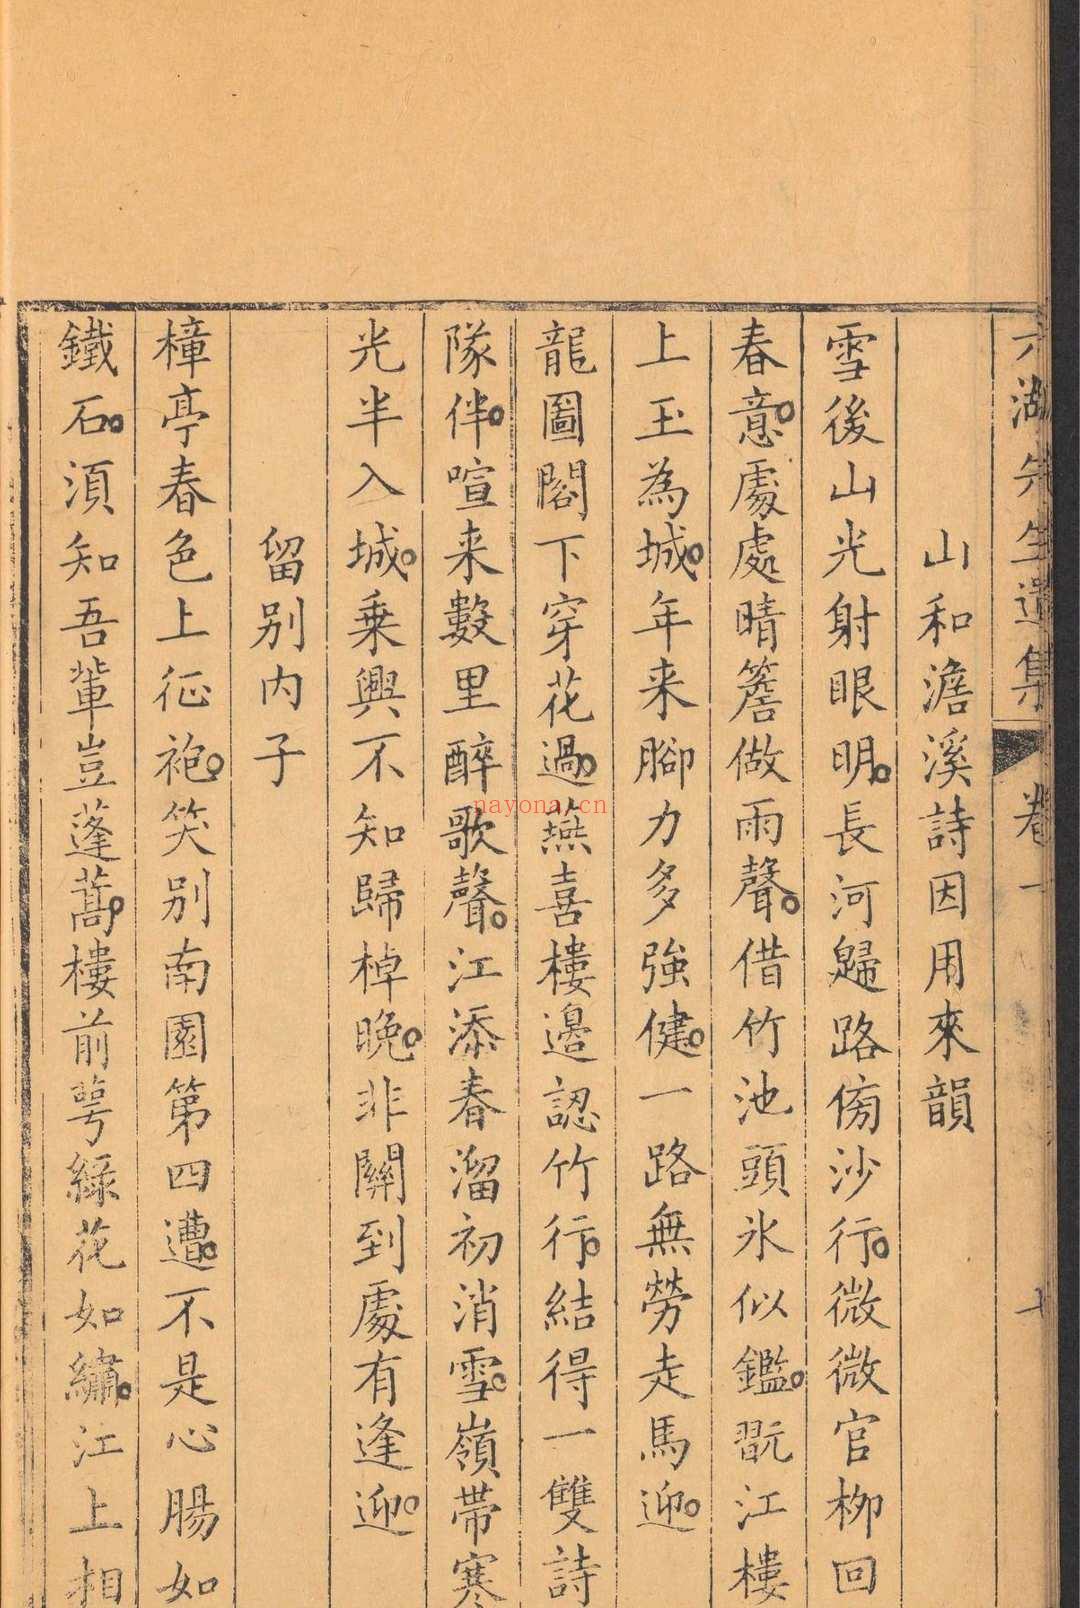 六湖先生遺集 卷一
山和澹溪詩因用來韻
雪後山光射眼明長河歸路傍沙行微微官柳回
春意處處晴簷做雨聲借竹池頭氷似鑑翫江樓
上玉為城年来腳力多強健一路無勞走馬迎
龍圖閣下穿花過燕喜樓邉認竹行結得一雙詩
隊伴喧来數里醉歌聲江添春溜初消雪嶺帶寒
光半入城乗興不知歸棹晚非關到處有逢迎
留别内子
樟亭春色上征袍笑别南園第四遭不是心腸如
鐵石須知吾輩豈蓬蒿樓前萼綠花如繡江上相
nayona.cn